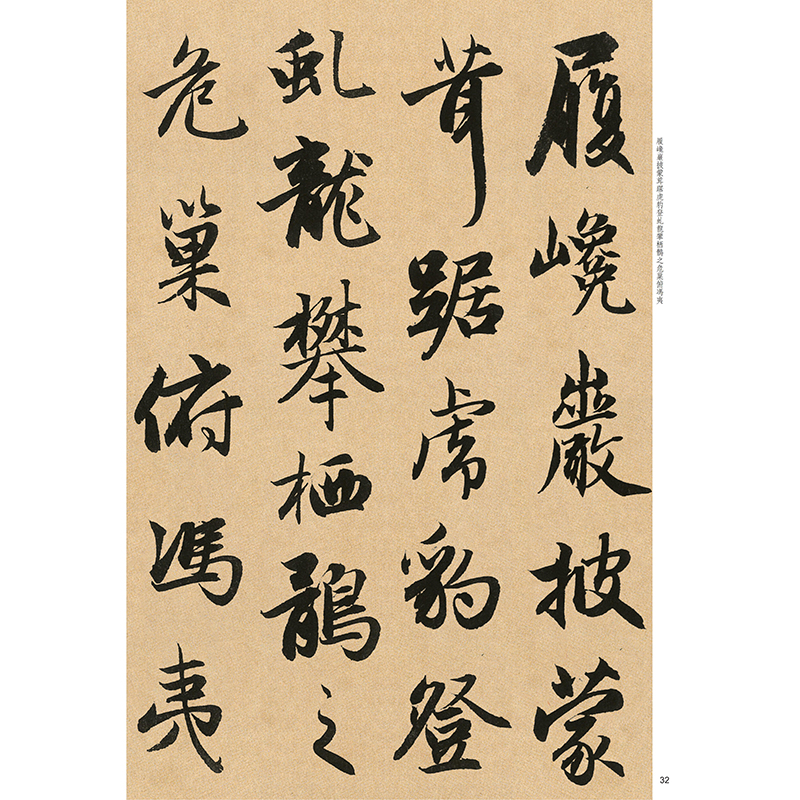 履巉巖披蒙茸踞虎豹登虬龍攀栖鶻之危巢俯馮夷
履巉巖披蒙
茸踞虎豹登
虬龍攀栖鶻之
危巢俯馮夷
32